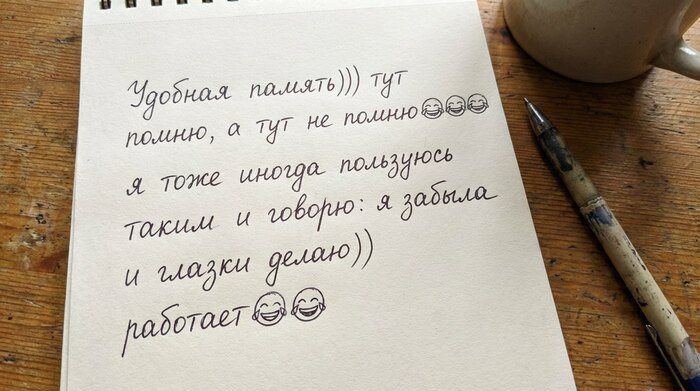 Удобная память))) тут
помню, а тут не помню😂😂😂
я тоже иногда пользуюсь
таким и говорю: я забыла
и глазки делаю))
работает😂😂